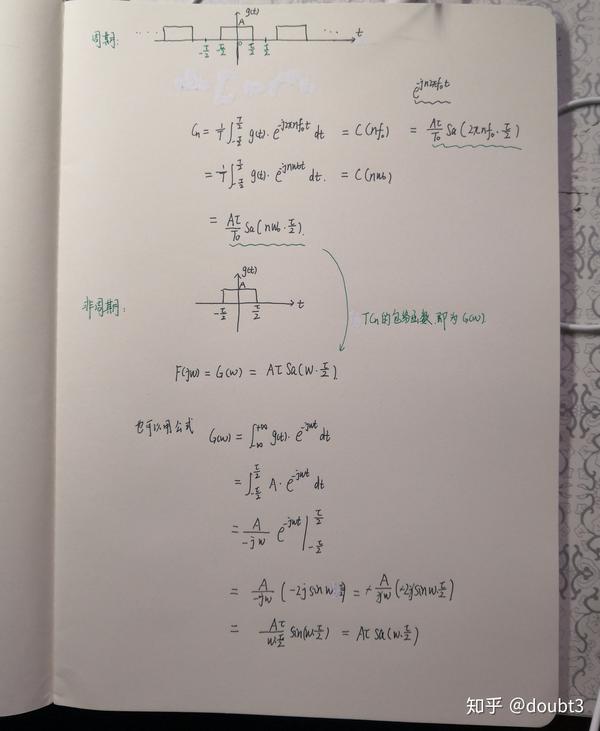 周期:
g(t)
A
... -T/2 -τ/2 0 τ/2 T/2 ... t
e^{jn2πf₀t}
Cn = 1/T ∫_{-T/2}^{T/2} g(t)·e^{-j2πnf₀t} dt = C(nf₀) = Aτ/T₀ Sa(2πnf₀·τ/2)
= 1/T ∫_{-T/2}^{T/2} g(t)·e^{-jnω₀t} dt. = C(nω₀)
= Aτ/T₀ Sa(nω₀·τ/2).
g(t)
A
非周期:
-τ/2 τ/2 t
TCn的包络函数,即为G(ω)
F(jω) = G(ω) = Aτ Sa(ω·τ/2).
也可以用公式
G(ω) = ∫_{-∞}^{+∞} g(t)·e^{-jωt} dt
= ∫_{-τ/2}^{τ/2} A·e^{-jωt} dt
= A/(-jω) e^{-jωt} |_{-τ/2}^{τ/2}
= A/(-jω) (-2j sin ω τ/2) = A/(jω) (2j sin ω·τ/2)
= Aτ/(ω·τ/2) sin(ω·τ/2) = Aτ Sa(ω·τ/2)
知乎 @doubt3